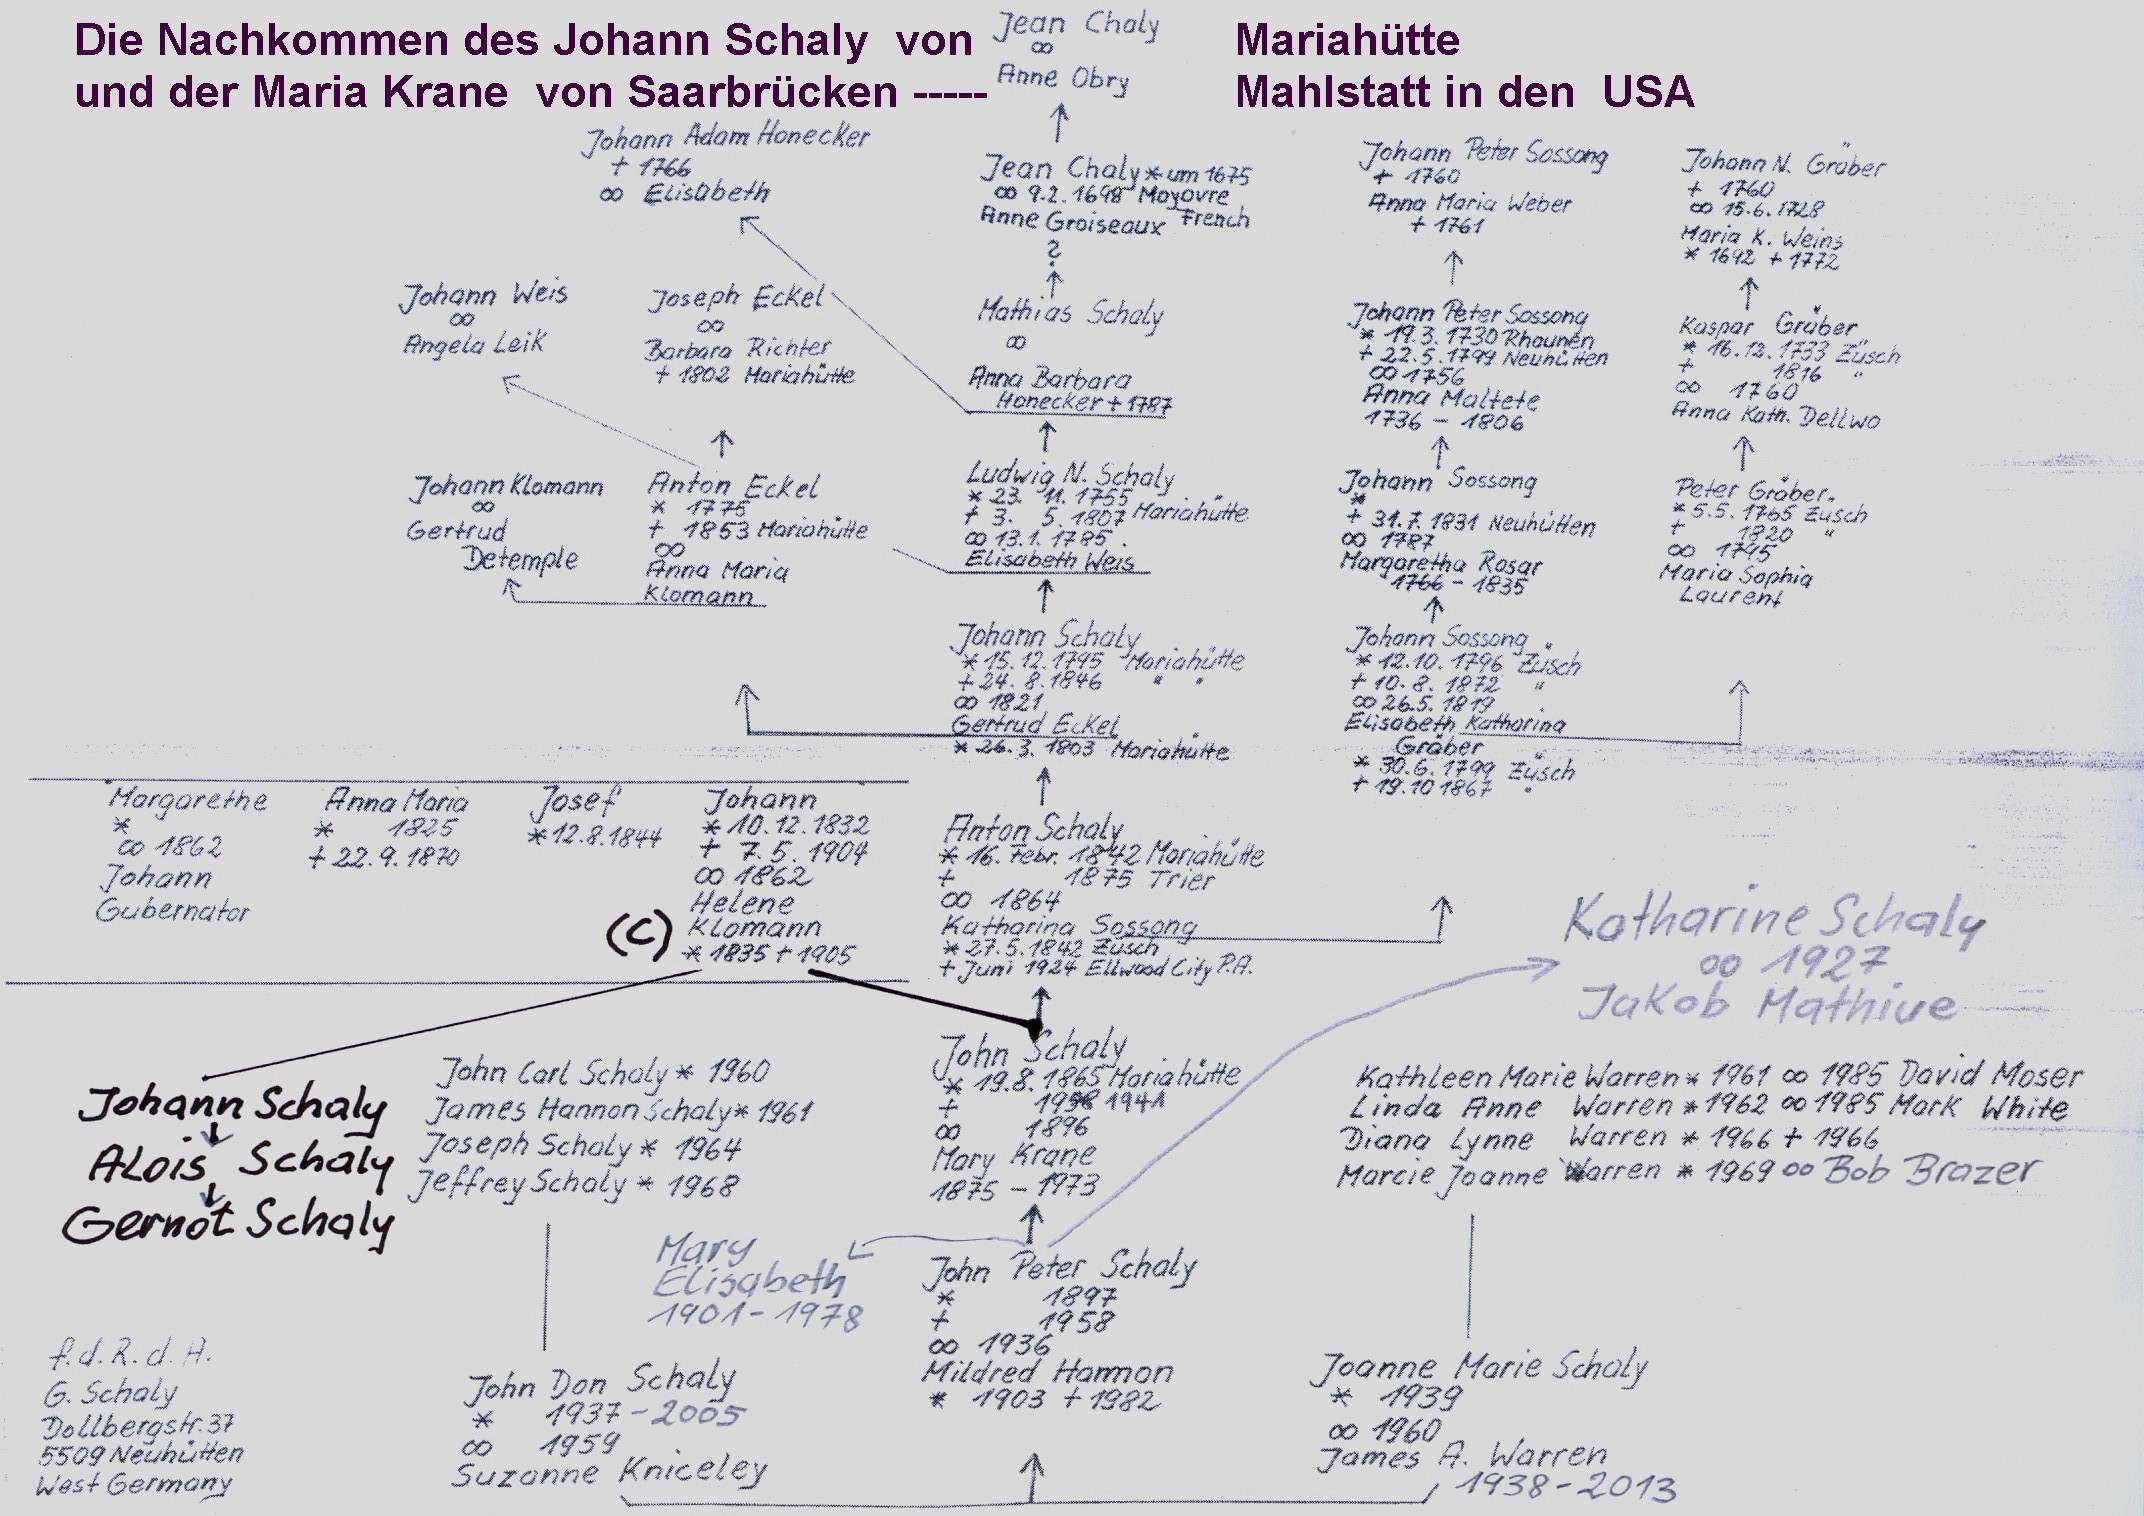 Die Nachkommen des Johann Schaly von Mariahütte
und der Maria Krane von Saarbrücken ----- Mahlstatt in den USA
Jean Chaly
∞
Anne Obry
Johann Adam Honecker
+ 1766
∞ Elisabeth
Jean Chaly * um 1675
∞ 9.2.1698 Moyovre
Anne Groiseaux French
?
Johann Peter Sossong
+ 1760
Anna Maria Weber
+ 1761
Johann N. Gräber
+ 1760
∞ 15.6.1728
Maria K. Weins
* 1692 + 1772
Johann Weis
∞
Angela Leik
Joseph Eckel
∞
Barbara Richter
+ 1802 Mariahütte
Mathias Schaly
∞
Anna Barbara
Honecker + 1787
Johann Peter Sossong
* 19.3.1730 Rhaunen
+ 22.5.1799 Neuhütten
∞ 1756
Anna Maltete
1736 - 1806
Kaspar Gräber
* 16.12.1733 Züsch
+ 1816 "
∞ 1760
Anna Kath. Dellwo
Johann Klomann
∞
Gertrud
Detemple
Anton Eckel
* 1775
+ 1853 Mariahütte
∞
Anna Maria
Klomann
Ludwig N. Schaly
* 23. 11. 1755
+ 3. 5. 1807 Mariahütte
∞ 13.1.1785.
Elisabeth Weis
Johann Sossong
*
+ 31.7.1831 Neuhütten
∞ 1787
Margaretha Rosar
1766 - 1835
Peter Gräber
* 5.5.1765 Züsch
+ 1820 "
∞ 1795
Maria Sophia
Laurent
Johann Schaly
* 15.12.1795 Mariahütte
+ 24.8.1846 " "
∞ 1821
Gertrud Eckel
* 26.3.1803 Mariahütte
Johann Sossong
* 12.10.1796 Züsch
+ 10.8.1872 "
∞ 26.5.1819
Elisabeth Katharina
Gräber
* 30.6.1799 Züsch
+ 19.10 1867 "
Margarethe
*
∞ 1862
Johann
Gubernator
Anna Maria
* 1825
+ 22.9.1870
Josef
* 12.8.1844
Johann
* 10.12.1832
+ 7.5.1904
∞ 1862
Helene
(C) Klomann
* 1835 + 1905
Anton Schaly
* 16. Febr. 1842 Mariahütte
+ 1875 Trier
∞ 1864
Katharina Sossong
* 27.5.1842 Züsch
+ Juni 1924 Ellwood City P.A.
Katharine Schaly
∞ 1927
Jakob Mathiue
Johann Schaly
Alois Schaly
Gernot Schaly
John Carl Schaly * 1960
James Hannon Schaly * 1961
Joseph Schaly * 1964
Jeffrey Schaly * 1968
John Schaly
* 19.8.1865 Mariahütte
+ 1958 1941
∞ 1896
Mary Krane
1875 - 1973
Kathleen Marie Warren * 1961 ∞ 1985 David Moser
Linda Anne Warren * 1962 ∞ 1985 Mark White
Diana Lynne Warren * 1966 + 1966
Marcie Joanne Warren * 1969 ∞ Bob Brazer
Mary
Elisabeth
1901 - 1978
John Peter Schaly
* 1897
+ 1958
∞ 1936
Mildred Hannon
* 1903 + 1982
f.d.R.d.A.
G. Schaly
Dollbergstr. 37
5509 Neuhütten
West Germany
John Don Schaly
* 1937 - 2005
∞ 1959
Suzanne Kniceley
Joanne Marie Schaly
* 1939
∞ 1960
James A. Warren
1938 - 2013